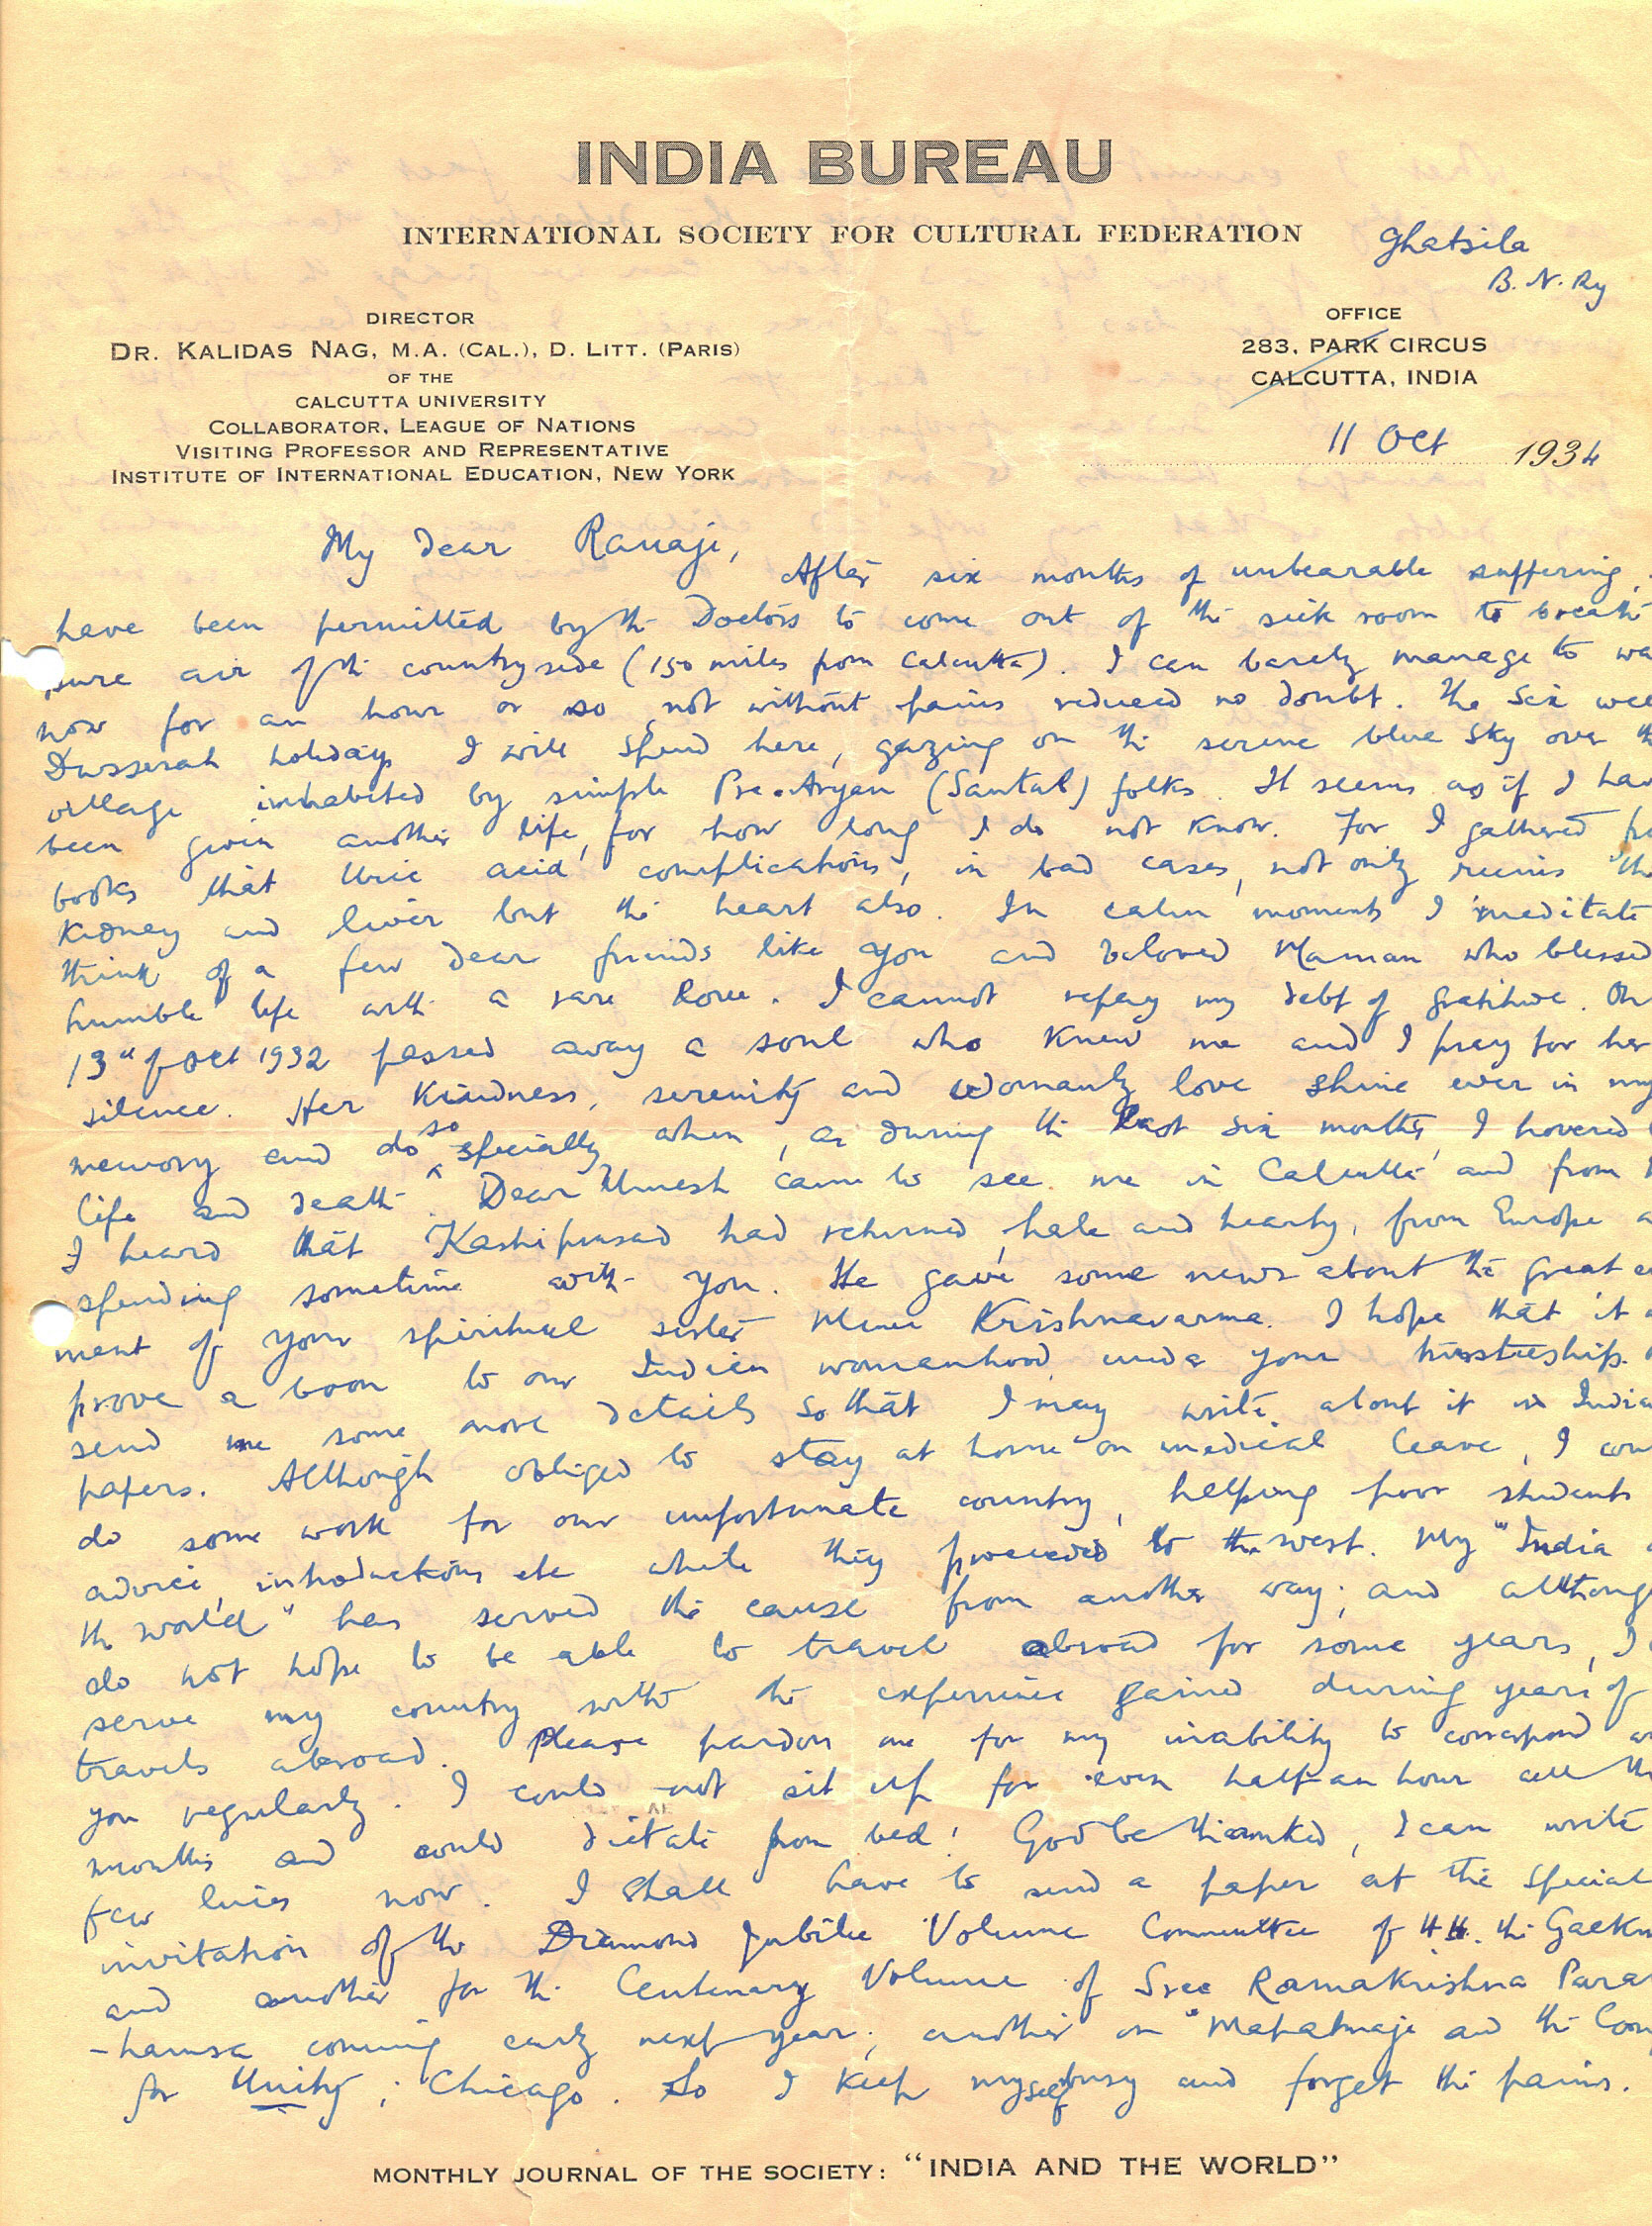 INDIA BUREAU
INTERNATIONAL SOCIETY FOR CULTURAL FEDERATION
Ghatsila
B. N. Ry
DIRECTOR
DR. KALIDAS NAG, M.A. (CAL.), D. LITT. (PARIS)
OF THE
CALCUTTA UNIVERSITY
COLLABORATOR, LEAGUE OF NATIONS
VISITING PROFESSOR AND REPRESENTATIVE
INSTITUTE OF INTERNATIONAL EDUCATION, NEW YORK
OFFICE
283, PARK CIRCUS
CALCUTTA, INDIA
11 Oct 1934
My Dear Ranaji,
After six months of unbearable suffering,
have been permitted by the Doctors to come out of the sick room to breath
pure air of the countryside (150 miles from Calcutta). I can barely manage to
now for an hour or so, not without pains reduced no doubt. The six
Dusserah holidays I will spend here, gazing on the serene blue sky over
village inhabited by simple Pre-Aryan (Santal) folks. It seems as if I
been given another life, for how long I do not know. For I gathered
books that Uric acid complications, in bad cases, not only ruins
Kidney and liver but the heart also. In calm moments I meditate
think of a few dear friends like you and beloved Maman who blessed
humble life with a rare love. I cannot repay my debt of gratitude.
13th of Oct 1932 passed away a soul who knew me and I pray for her
silence. Her kindness, serenity and womanly love shine ever in my
memory and do so specially when, as during the last six months, I hovered
life and death. Dear Umesh came to see me in Calcutta and from
I heard that Kashiprasad had returned, hale and hearty, from Europe
spending sometime with you. He gave some news about the great
ment of your spiritual sister Mme Krishnavarma. I hope that it
prove a boon to our Indian womanhood under your trusteeship.
send me some more details so that I may write about it in
papers. Although obliged to stay at home on medical leave, I
do some work for our unfortunate country, helping poor students
advice, introductions etc while they proceeded to the west. My "India
the world" has served the cause from another way; and
do not hope to be able to travel abroad for some years, I
serve my country with the experience gained during years of
travels abroad. Please pardon me for my inability to correspond
you regularly. I could not sit up for even half-an hour all
months and could dictate from bed! God be thanked, I can write
few lines now. I shall have to send a paper at the special
invitation of the Diamond Jubilee Volume Committee of H.H. the
and another for the Centenary Volume of Sree Ramakrishna
-hamsa coming early next year; another on "Mahatmaji and the
for Unity; Chicago. So I keep myself busy and forget the pains.
MONTHLY JOURNAL OF THE SOCIETY: "INDIA AND THE WORLD"